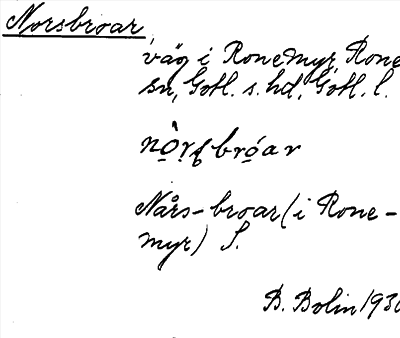 Norsbroar,
väg i Rone myr, Rone
sn, Gotl. s. hd, Gotl. l.
Nårs-broar (i Rone-
myr) S.
B. Bolin 1930